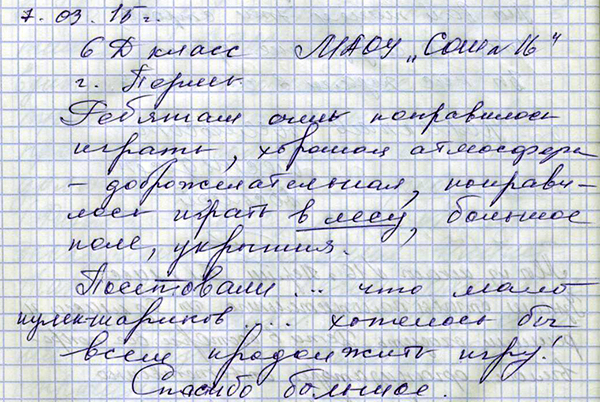 7. 03. 15 г.
6 Д класс МАОУ „СОШ № 16"
г. Пермь.
Ребятам очень понравилось
играть, хорошая атмосфера
– доброжелательная, понрави-
лось играть в лесу, большое
поле, укрытия.
Посетовали... что мало
пулек-шариков.... хотелось бы
всем продолжить игру!
Спасибо большое.